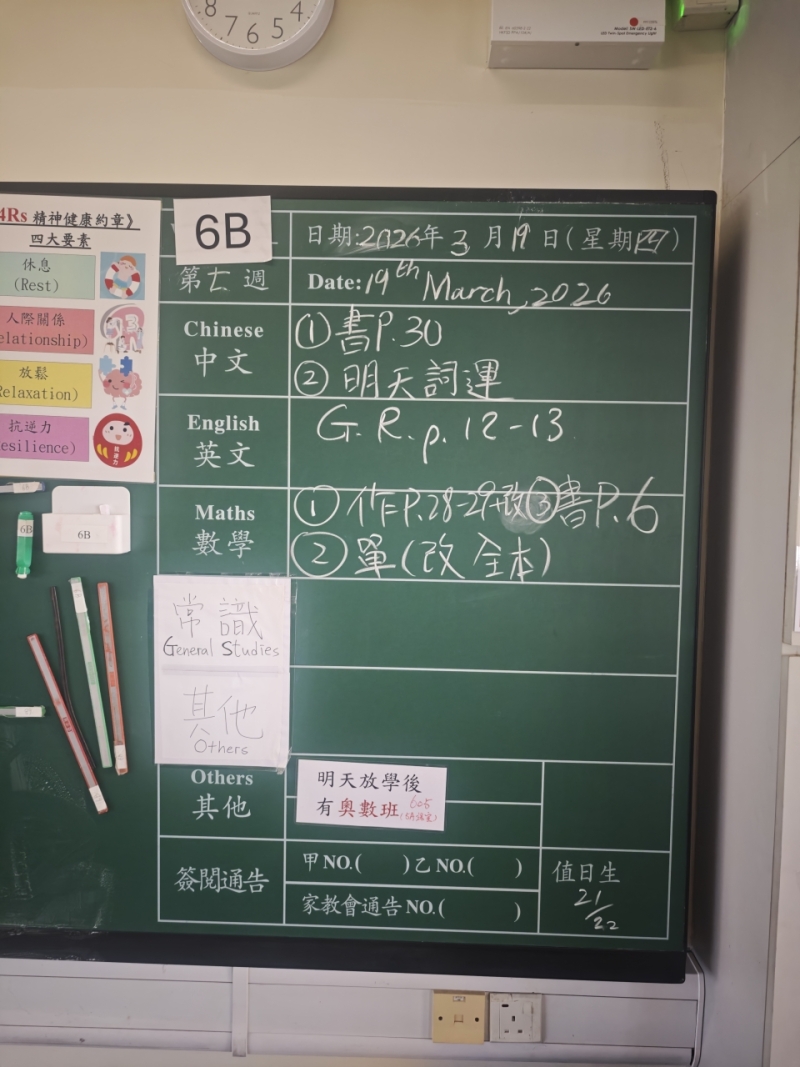 8 7 6 5 4
4Rs 精神健康約章》
四大要素
休息
(Rest)
人際關係
elationship)
放鬆
Relaxation)
抗逆力
esilience)
6B
6B
6B
日期:2026年3月19日(星期四)
第七週
Date: 19th March, 2026
Chinese
中文
①書P.30
②明天詞運
English
英文
G. R. p. 12-13
Maths
數學
①作P.28-29改③書P.6
②單(改全本)
常識
General Studies
其他
Others
Others
其他
明天放學後
有奧數班 605
簽閱通告
甲NO.( )乙NO.( )
家教會通告NO.( )
值日生
21/22